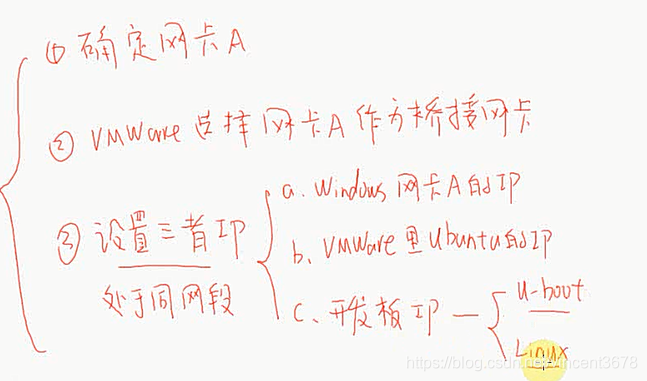 ① 确定网卡A
② VMWare 选择网卡A作为桥接网卡
③ 设置三者IP
处于同网段
a. Windows 网卡A的IP
b. VMWare里Ubuntu的IP
c. 开发板IP —
u-boot
Linux
https://blog.csdn.net/vincent3678